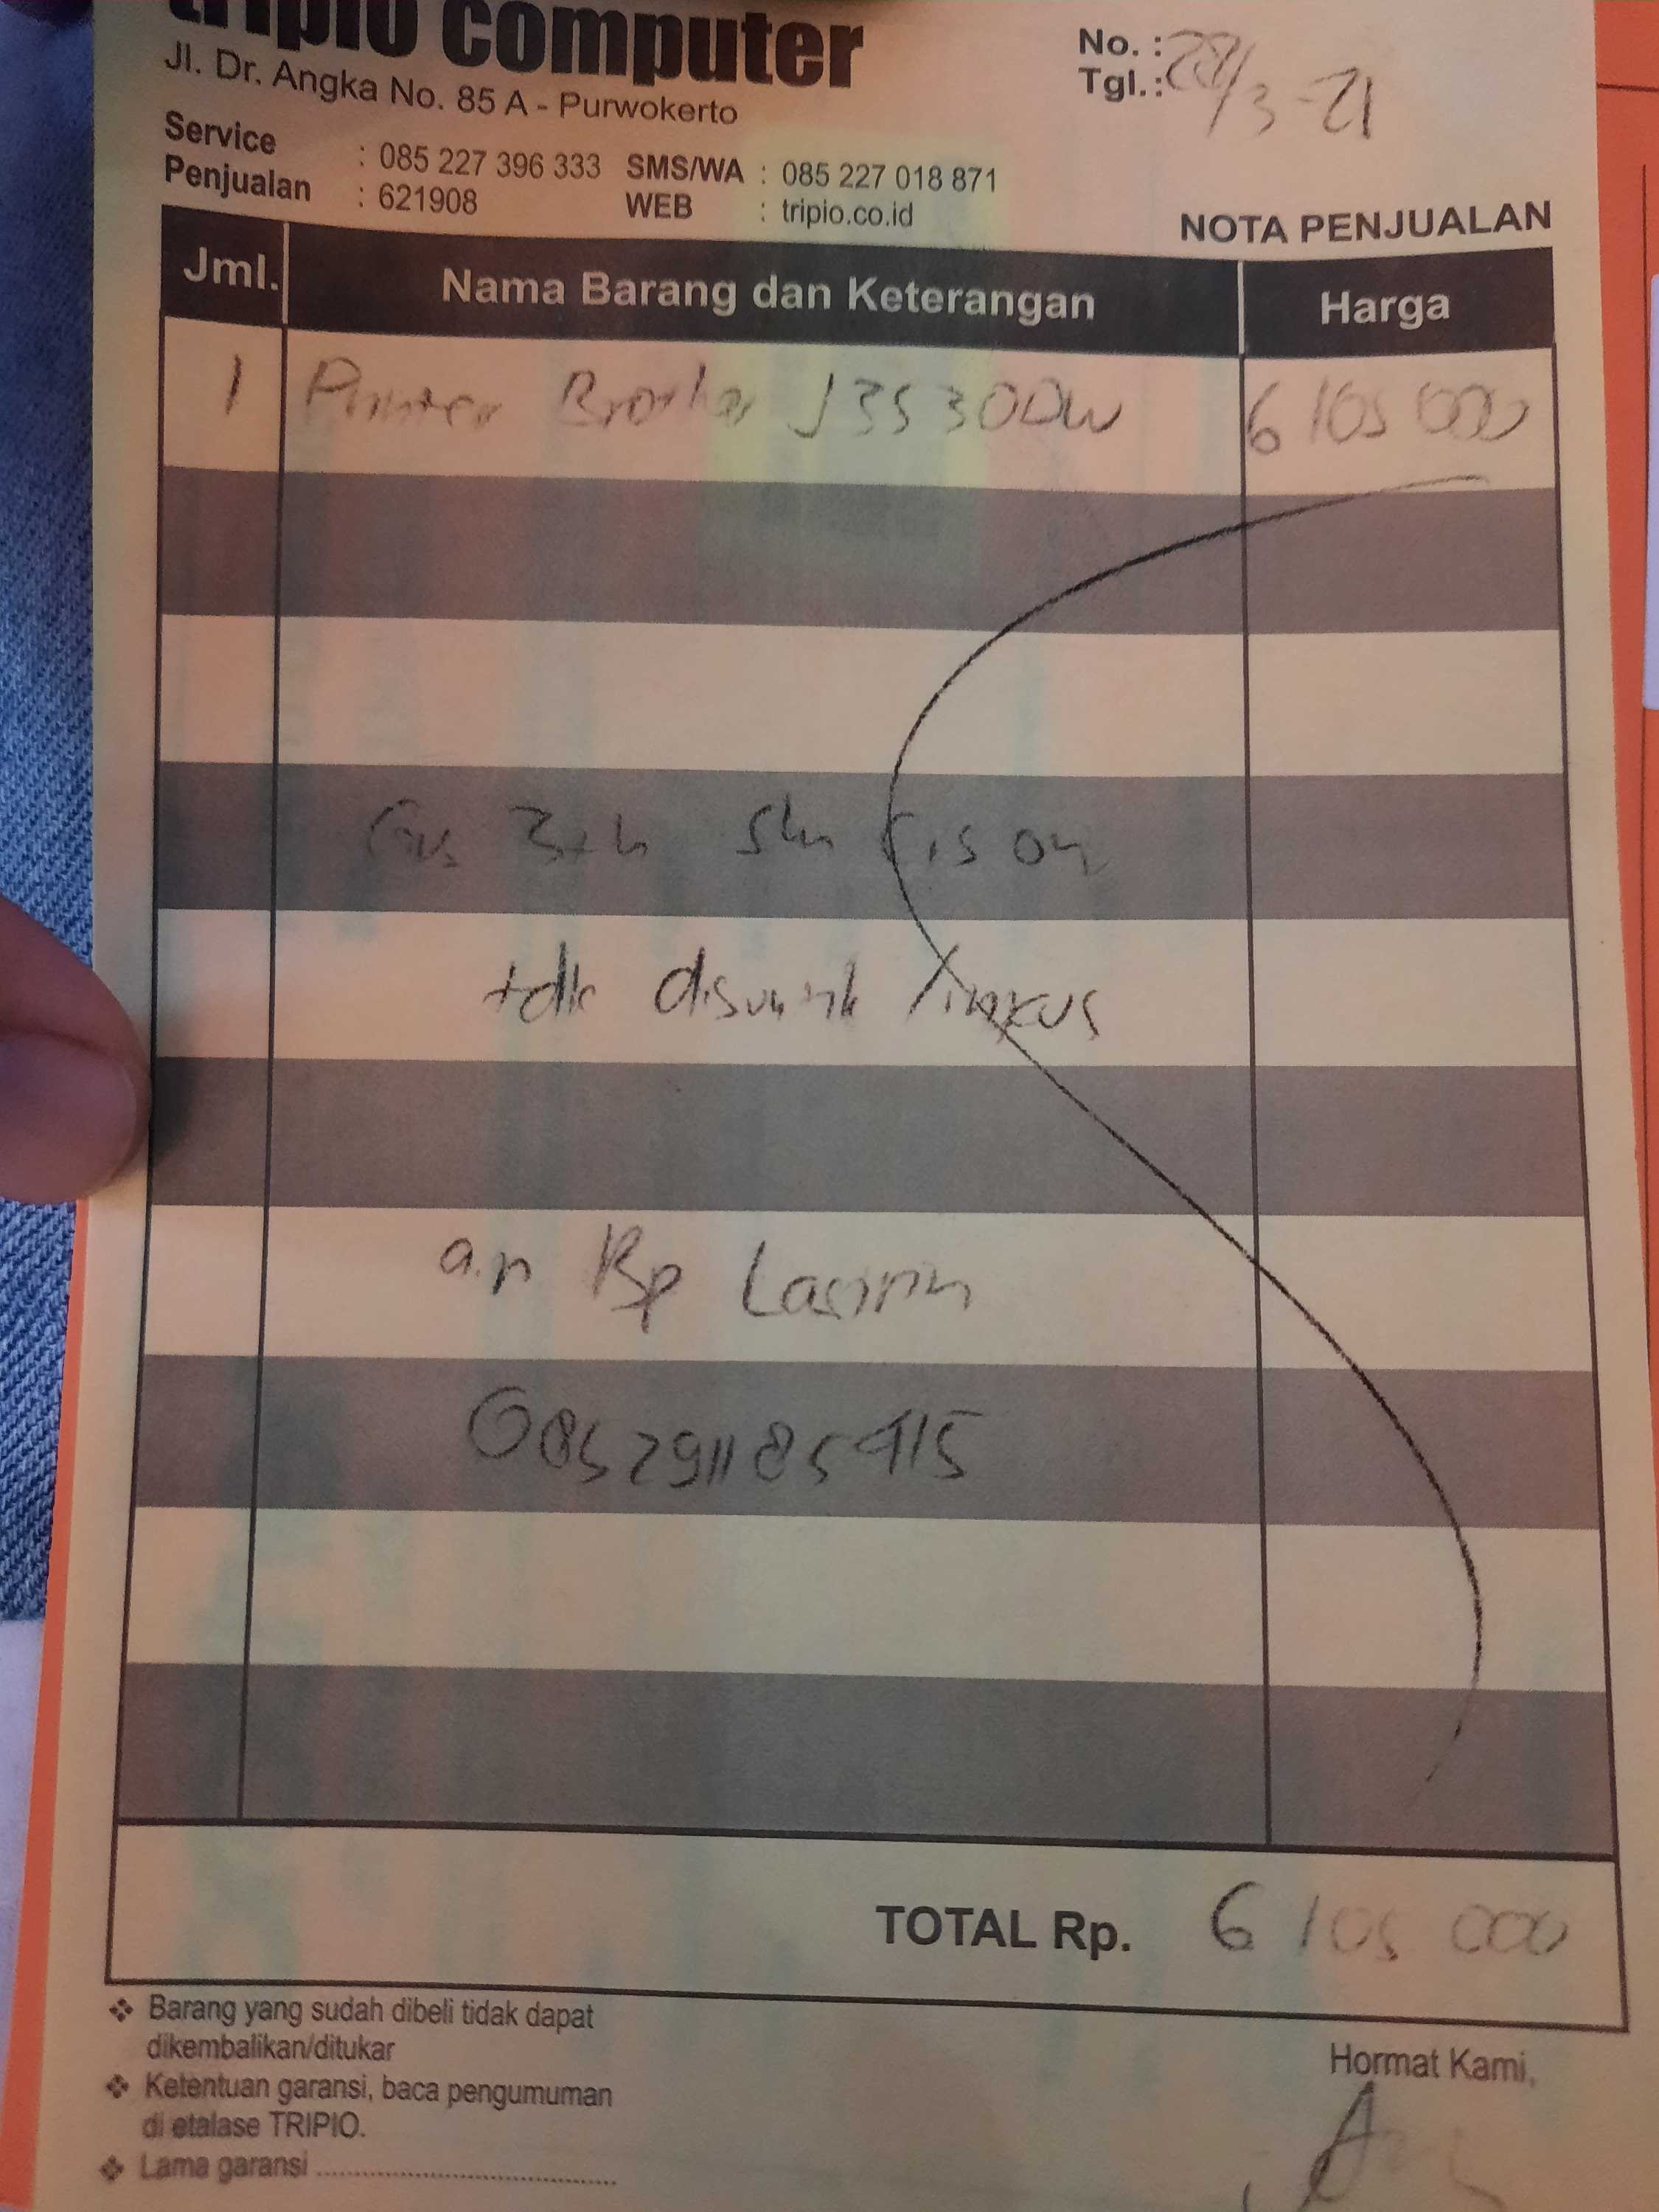 tripio computer
Jl. Dr. Angka No. 85 A - Purwokerto
No. :
Tgl.: 28/3-21
Service : 085 227 396 333 SMS/WA : 085 227 018 871
Penjualan : 621908 WEB : tripio.co.id
NOTA PENJUALAN
Jml. Nama Barang dan Keterangan Harga
1 Printer Brother J3530DW 6 105 000
Grs 3th
tdk
a.n Bp
085291185415
TOTAL Rp. 6 105 000
❖ Barang yang sudah dibeli tidak dapat
dikembalikan/ditukar
❖ Ketentuan garansi, baca pengumuman
di etalase TRIPIO.
❖ Lama garansi ........................................
Hormat Kami,